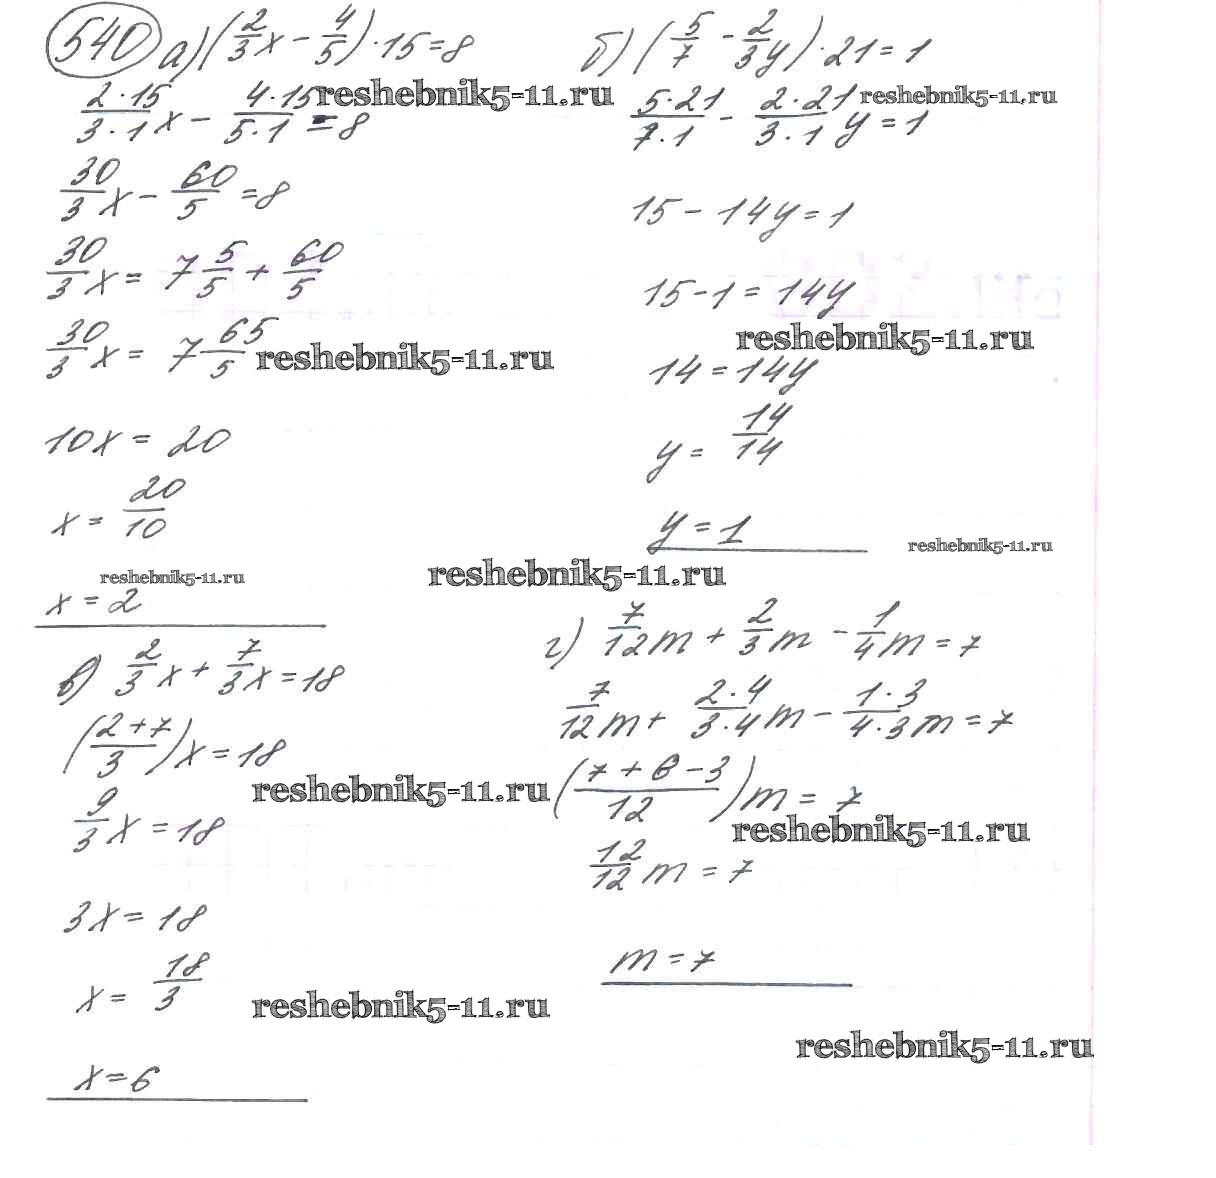 540 а) (2/3 x − 4/5) · 15 = 8
(2·15)/(3·1) x − (4·15)/(5·1) = 8
reshebnik5-11.ru
30/3 x − 60/5 = 8
30/3 x = 7 5/5 + 60/5
30/3 x = 7 65/5
reshebnik5-11.ru
10x = 20
x = 20/10
reshebnik5-11.ru
x = 2
б) (5/7 − 2/3 y) · 21 = 1
(5·21)/(7·1) − (2·21)/(3·1) y = 1
reshebnik5-11.ru
15 − 14y = 1
15 − 1 = 14y
reshebnik5-11.ru
14 = 14y
y = 14/14
y = 1
reshebnik5-11.ru
reshebnik5-11.ru
в) 2/3 x + 7/3 x = 18
((2+7)/3) x = 18
reshebnik5-11.ru
9/3 x = 18
3x = 18
x = 18/3
reshebnik5-11.ru
x = 6
г) 7/12 m + 2/3 m − 1/4 m = 7
7/12 m + (2·4)/(3·4) m − (1·3)/(4·3) m = 7
((7 + 8 − 3)/12) m = 7
reshebnik5-11.ru
12/12 m = 7
m = 7
reshebnik5-11.ru